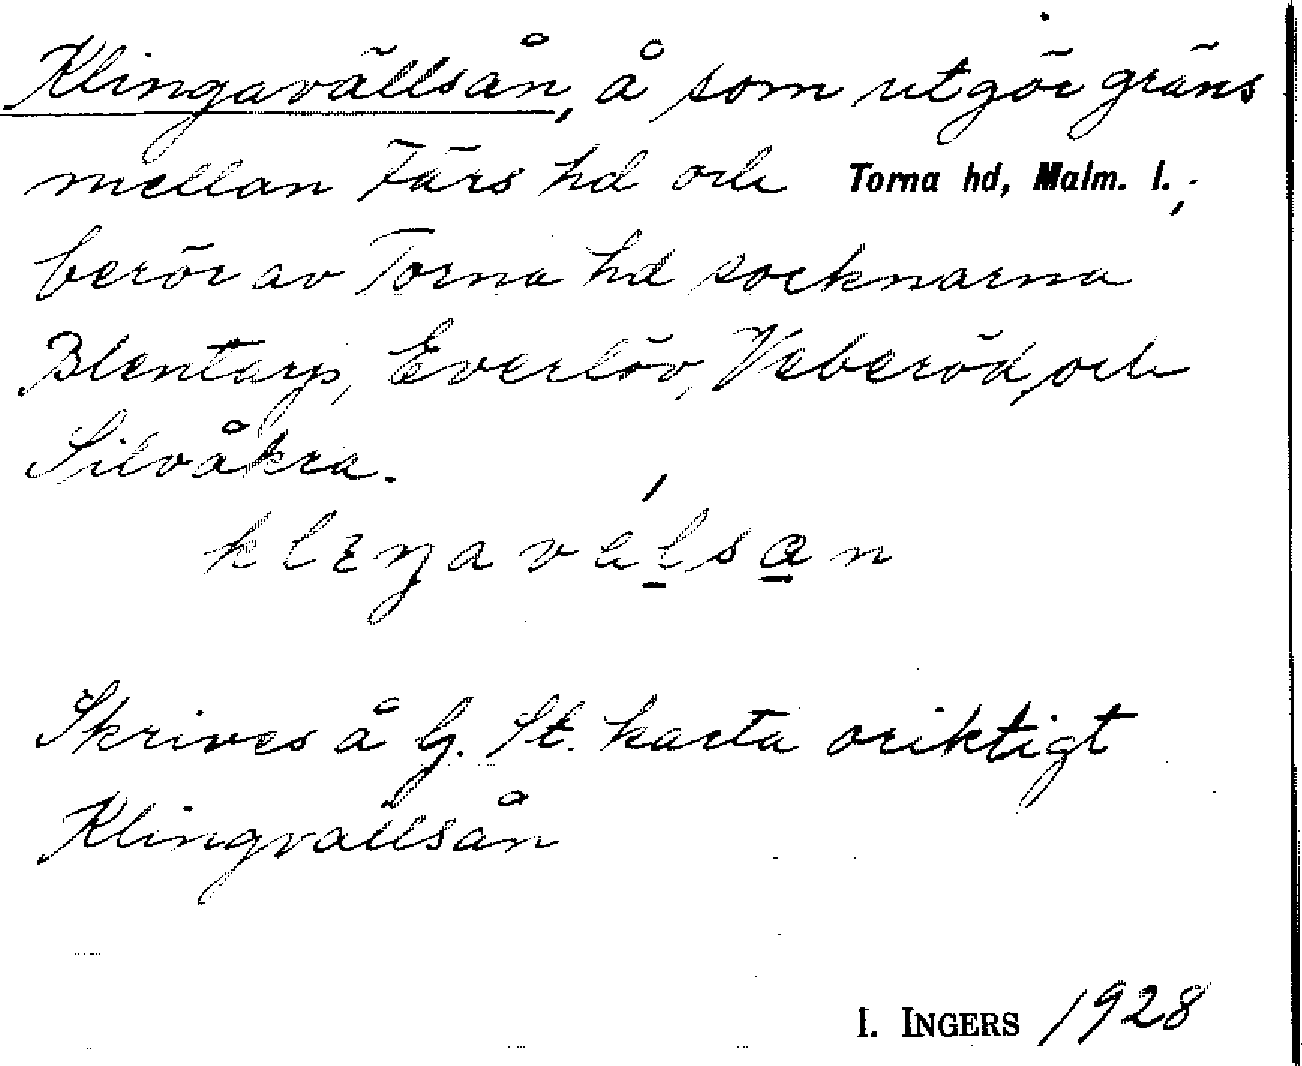 Klingavällsån, å som utgör gräns
mellan Färs hd och Torna hd, Malm. l.;
berör av Torna hd socknarna
Blentarp, Everlöv, Veberöd, och
Silvåkra.
klɛŋavalsan
Skrives å G. St. karta oriktigt
Klingvallsån
I. INGERS 1928